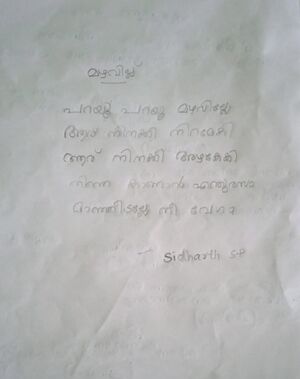 മഴവില്ല്
പറയൂ പറയൂ മഴവില്ലേ
ആര് നിനക്കീ നിറമേകി
ആര് നിനക്കീ അഴകേകി
നിന്നെ കാണാൻ എന്തുരസം
മാഞ്ഞീടല്ലേ നീ വേഗം
- Sidharth SP